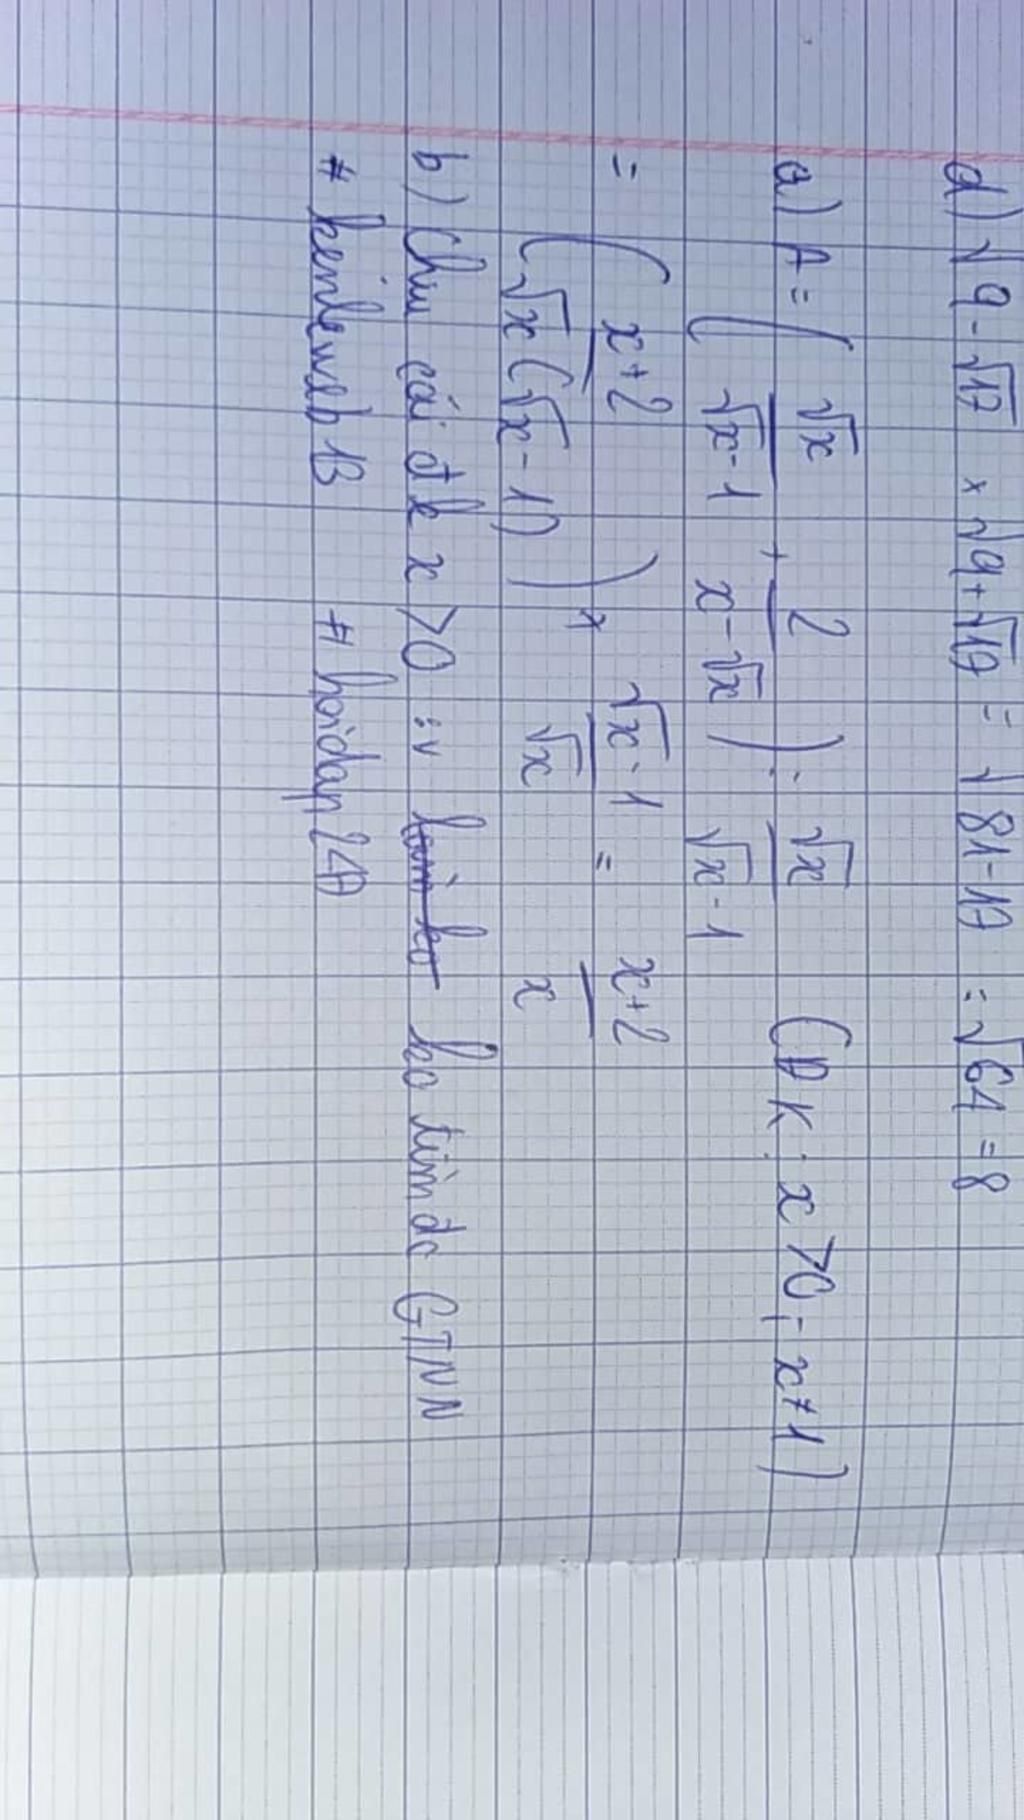 d) √9-√17 × √9+√17 = √81-17 = √64 = 8
a) A = ( √x/√x-1 + 2/x-√x ) : √x/√x-1 (ĐK: x>0; x≠1)
= ( x+2/√x(√x-1) ) × √x-1/√x = x+2/x
b) Chịu cái đk x>0 :v ko tìm đc GTNN
# kenleweb13 # hoidap247